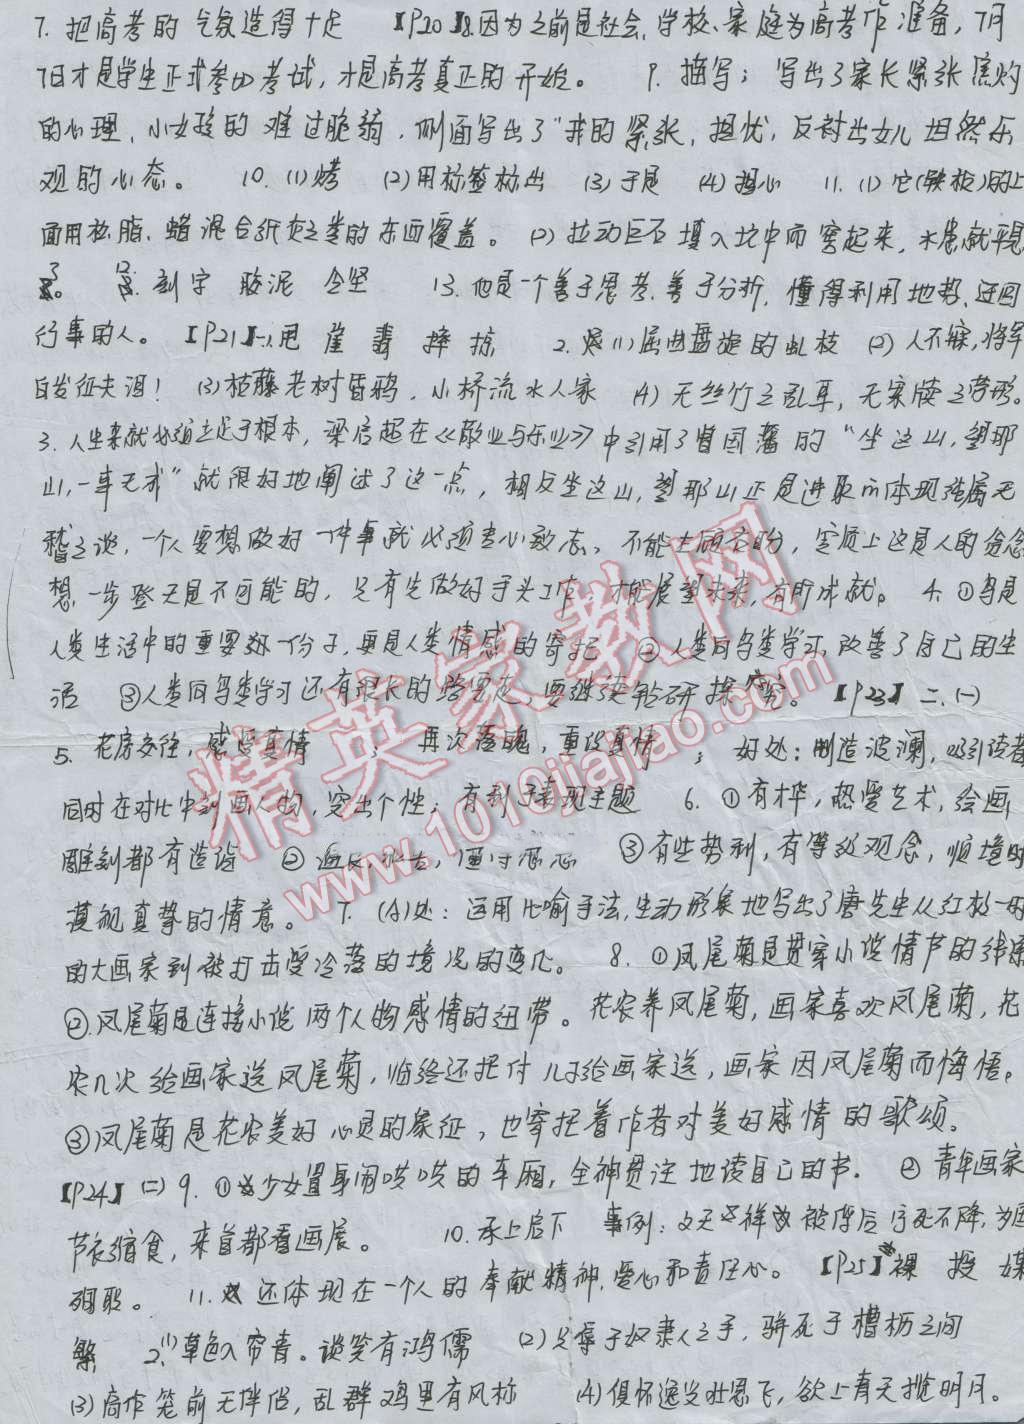 7. 把高考的气氛造得十足 【P20】8.因为之前是社会、学校、家庭为高考作准备，7月
7日才是学生正式参加考试，才是高考真正的开始。 9. 描写：写出了家长紧张焦灼
的心理，小女孩的难过脆弱，侧面写出了"我的紧张，担忧，反衬出女儿坦然乐
观的心态。 10. (1)烤 (2)用标签标出 (3)于是 (4)担心 11. (1)它(铁板)的上
面用松脂、蜡混合纸灰之类的东西覆盖。 (2)拉动巨石填入坑中而窄起来，水患就平息
了。 12. 刻字 胶泥 令坚 13. 他是一个善于思考、善于分析，懂得利用地势、
行事的人。 【P21】一、1.甩 崖 翡 掠 2. (1)屈曲盘旋的虬枝 (2)人不寐，将军
白发征夫泪！ (3)枯藤老树昏鸦，小桥流水人家 (4)无丝竹之乱耳，无案牍之劳形。
3. 人生来就必须立足于根本，梁启超在《敬业与乐业》中引用了曾国藩的"坐这山，望那
山，一事无成"就很好地阐述了这一点，相反坐这山，望那山正是进取的体现纯属无
稽之谈，一个人要想做好一件事就必须专心致志、不能左顾右盼，实质上这是人的贪念
想一步登天是不可能的，只有先做好手头工作，才能展望未来，有所成就。 4. ①鸟是
人类生活中的重要组一份子，更是人类情感的寄托 ②人类向鸟类学习，改善了自己的生
活 ③人类向鸟类学习还有很长的路要走，要继续钻研探究。 【P23】二、(一)
5. 花房交往，感受真情 ； 再次落魄，重设真情 ； 好处：制造波澜，吸引读者
同时在对比中刻画人物，突出个性；有利于表现主题 6. ①有才华，热爱艺术，绘画
雕刻都有造诣 ② ③有些势利，有等级观念，顺境时
漠视真挚的情意。 7. (A)处：运用比喻手法，生动形象地写出了唐先生从红极一时
的大画家到被打击受冷落的境况的变化。 8. ①凤尾菊是贯穿小说情节的线索
②凤尾菊是连接小说两个人物感情的纽带。花农养凤尾菊，画家喜欢凤尾菊，花
农几次给画家送凤尾菊，临终还托付儿子给画家送，画家因凤尾菊而悔悟。
③凤尾菊是花农美好心灵的象征，也寄托着作者对美好感情的歌颂。
【P24】(二) 9. ①少女置身闹哄哄的车厢，全神贯注地读自己的书。 ②青年画家
节衣缩食，来首都看画展。 10. 承上启下 事例：文天祥被俘后宁死不降，为国
殉职。 11. 还体现在一个人的奉献精神，爱心和责任心。 【P25】裸 投 媒
繁 2. (1)草色入帘青。谈笑有鸿儒 (2)只辱于奴隶人之手，骈死于槽枥之间
(3)高作笼前无伴侣，乱群鸡里有风标 (4)俱怀逸兴壮思飞，欲上青天揽明月。
精英家教网
www.1010jiajiao.com